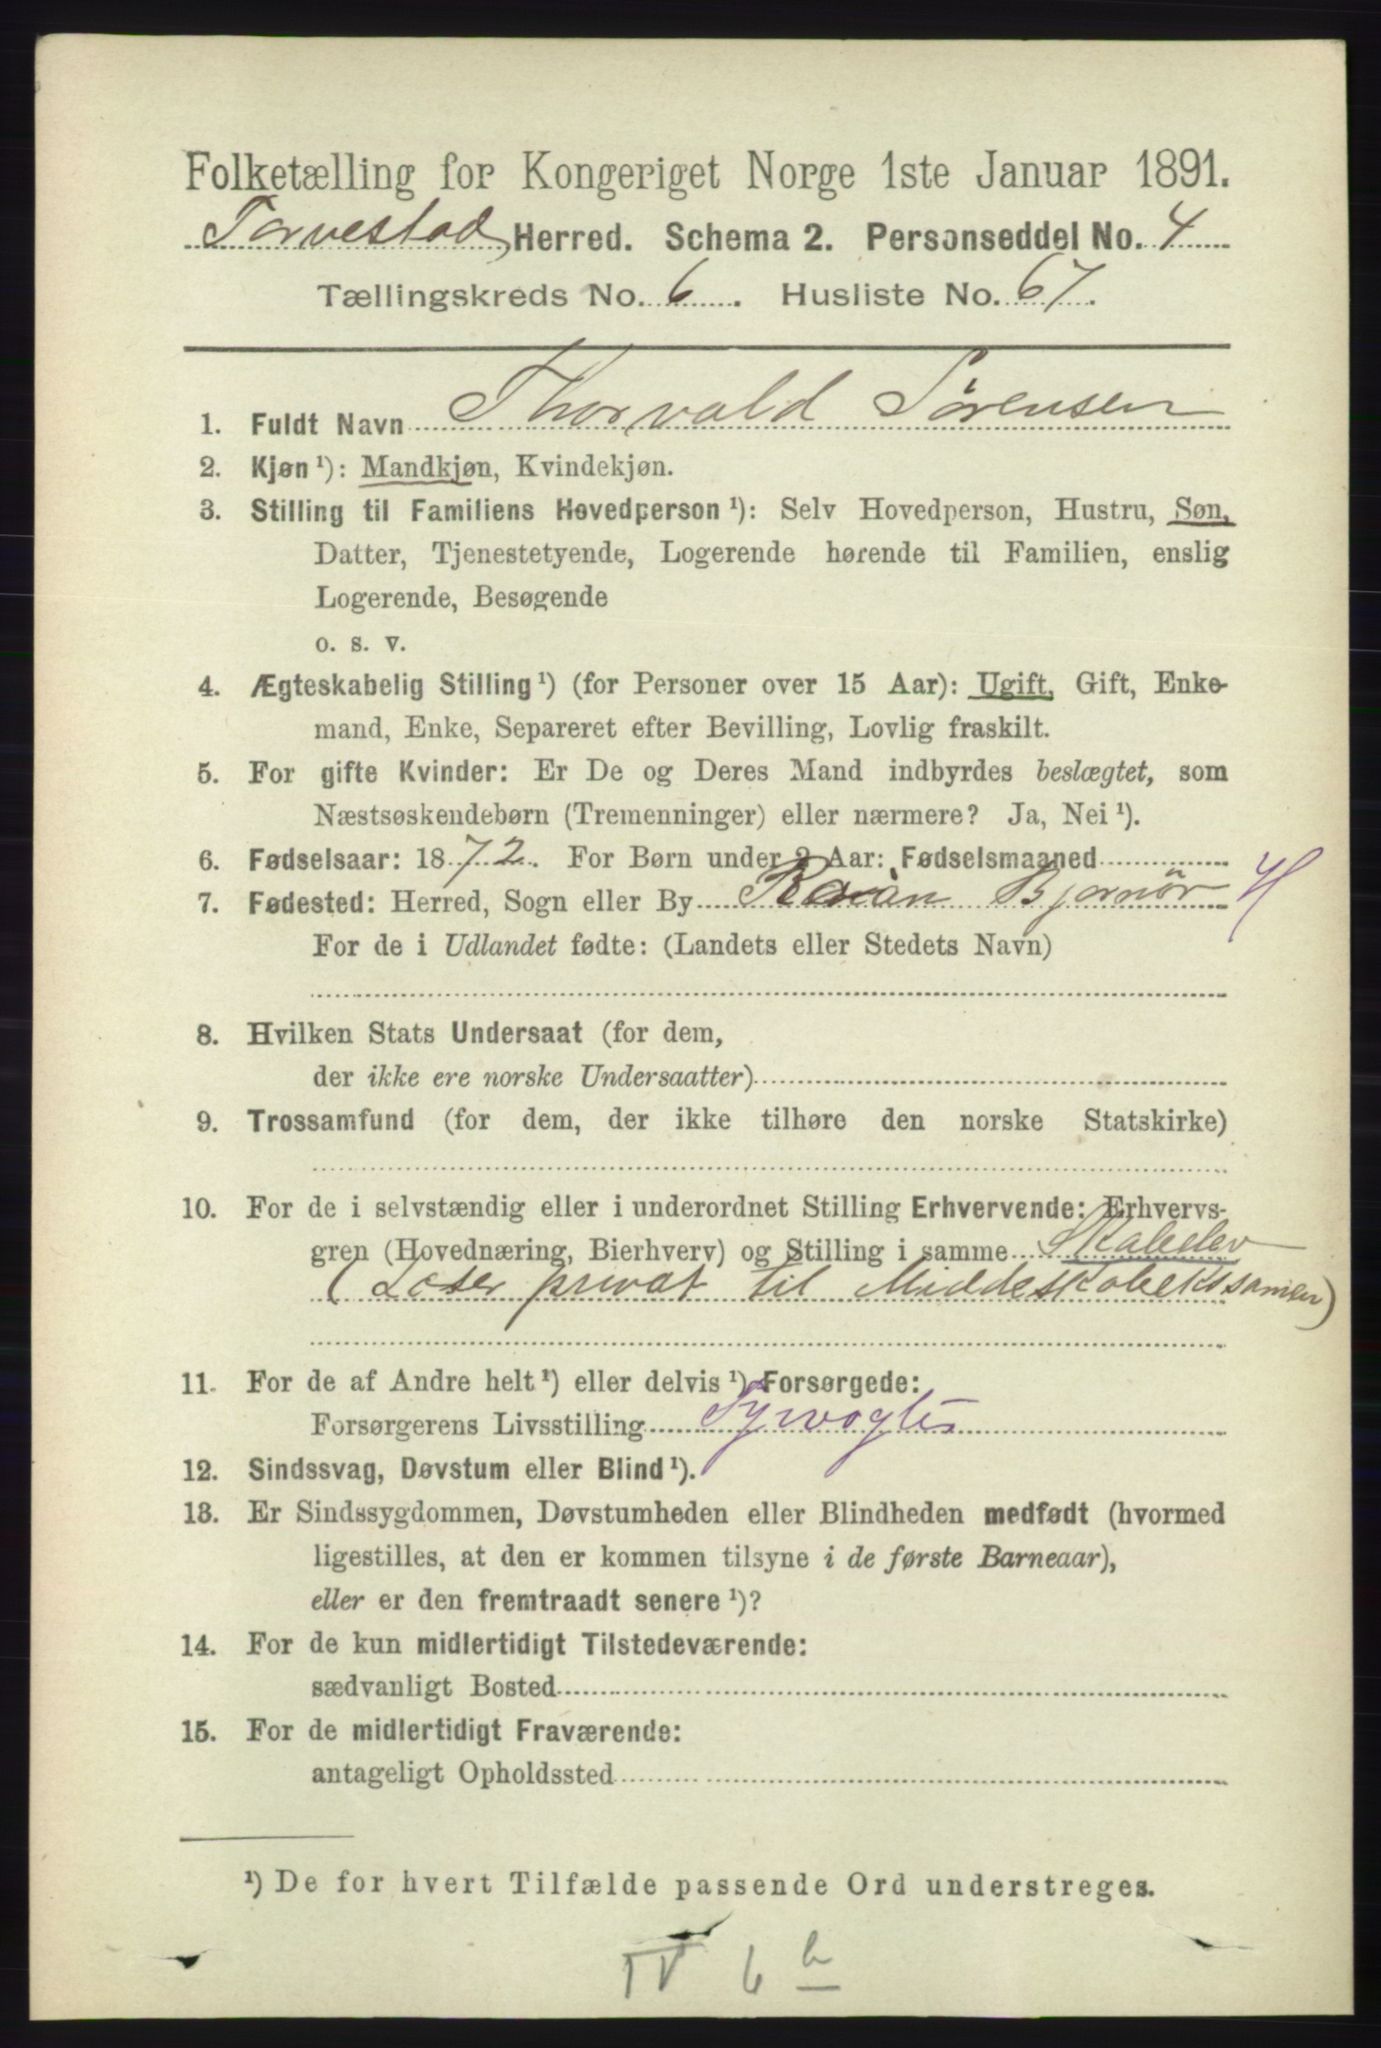 Folketælling for Kongeriget Norge 1ste Januar 1891.
Torvestad Herred. Schema 2. Personseddel No. 4
Tællingskreds No. 6. Husliste No. 67.
1. Fuldt Navn Thorvald Sørensen
2. Kjøn ¹): Mandkjøn, Kvindekjøn.
3. Stilling til Familiens Hovedperson ¹): Selv Hovedperson, Hustru, Søn,
Datter, Tjenestetyende, Logerende hørende til Familien, enslig
Logerende, Besøgende
o. s. v.
4. Ægteskabelig Stilling ¹) (for Personer over 15 Aar): Ugift, Gift, Enke-
mand, Enke, Separeret efter Bevilling, Lovlig fraskilt.
5. For gifte Kvinder: Er De og Deres Mand indbyrdes beslægtet, som
Næstsøskendebørn (Tremenninger) eller nærmere? Ja, Nei ¹).
6. Fødselsaar: 1872. For Børn under 2 Aar: Fødselsmaaned
7. Fødested: Herred, Sogn eller By Bjørnør
For de i Udlandet fødte: (Landets eller Stedets Navn)
8. Hvilken Stats Undersaat (for dem,
der ikke ere norske Undersaatter)
9. Trossamfund (for dem, der ikke tilhøre den norske Statskirke)
10. For de i selvstændig eller i underordnet Stilling Erhvervende: Erhvervs-
gren (Hovednæring, Bierhverv) og Stilling i samme Skoleelev
(Læser privat til Middelskoleeksamen)
11. For de af Andre helt ¹) eller delvis ¹) Forsørgede:
Forsørgerens Livsstilling Fyrvogter
12. Sindssvag, Døvstum eller Blind ¹).
13. Er Sindssygdommen, Døvstumheden eller Blindheden medfødt (hvormed
ligestilles, at den er kommen tilsyne i de første Barneaar),
eller er den fremtraadt senere ¹)?
14. For de kun midlertidigt Tilstedeværende:
sædvanligt Bosted
15. For de midlertidigt Fraværende:
antageligt Opholdssted
¹) De for hvert Tilfælde passende Ord understreges.
IV 6 b